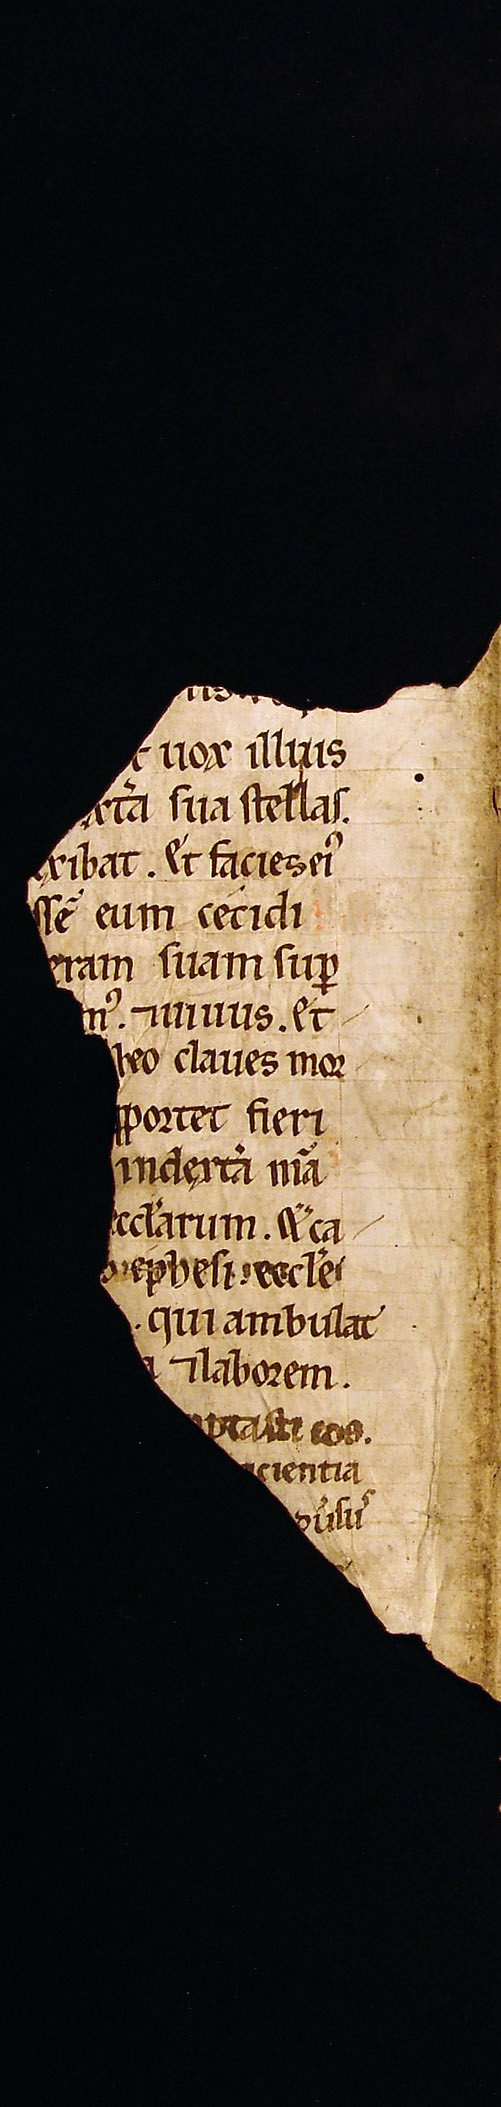 t uox illius
xtᷓa sua stellas.
xibat. Et facies ei⁹
ssē eum cecidi
eram suam suꝑ
m⁹. ⁊uiuus. et
beo claues moꝛ
oportet fieri
indextᷓa mᷓa
eccl̄arum. & ca
ephesi eccl̄ei
. qui ambulat
a ⁊laborem.
ptasti eos.
acientia